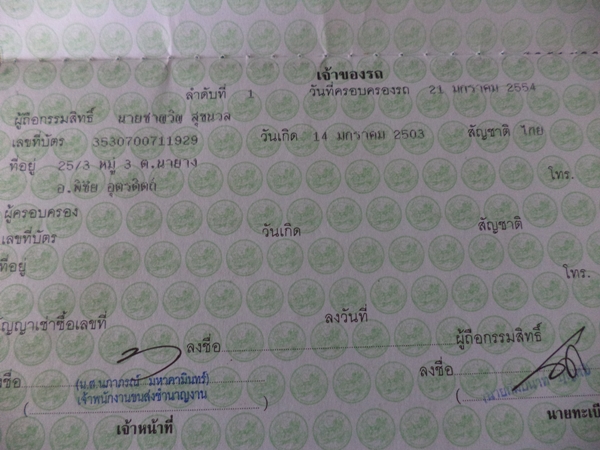 เจ้าของรถ
ลำดับที่ 1 วันที่ครอบครองรถ 21 มกราคม 2554
ผู้ถือกรรมสิทธิ์ นายชาญวิญ สุขนวล
เลขที่บัตร 3530700711929 วันเกิด 14 มกราคม 2503 สัญชาติ ไทย
ที่อยู่ 25/3 หมู่ 3 ต.นายาง โทร.
อ.พิชัย อุตรดิตถ์
ผู้ครอบครอง
เลขที่บัตร วันเกิด สัญชาติ
ที่อยู่ โทร.
ัญญาเช่าซื้อเลขที่ ลงวันที่
ลงชื่อ ผู้ถือกรรมสิทธิ์
งชื่อ ลงชื่อ
(น.ส.นภาภรณ์ มหาคามินทร์)
เจ้าพนักงานขนส่งชำนาญงาน
( )
เจ้าหน้าที่ นายทะเบี